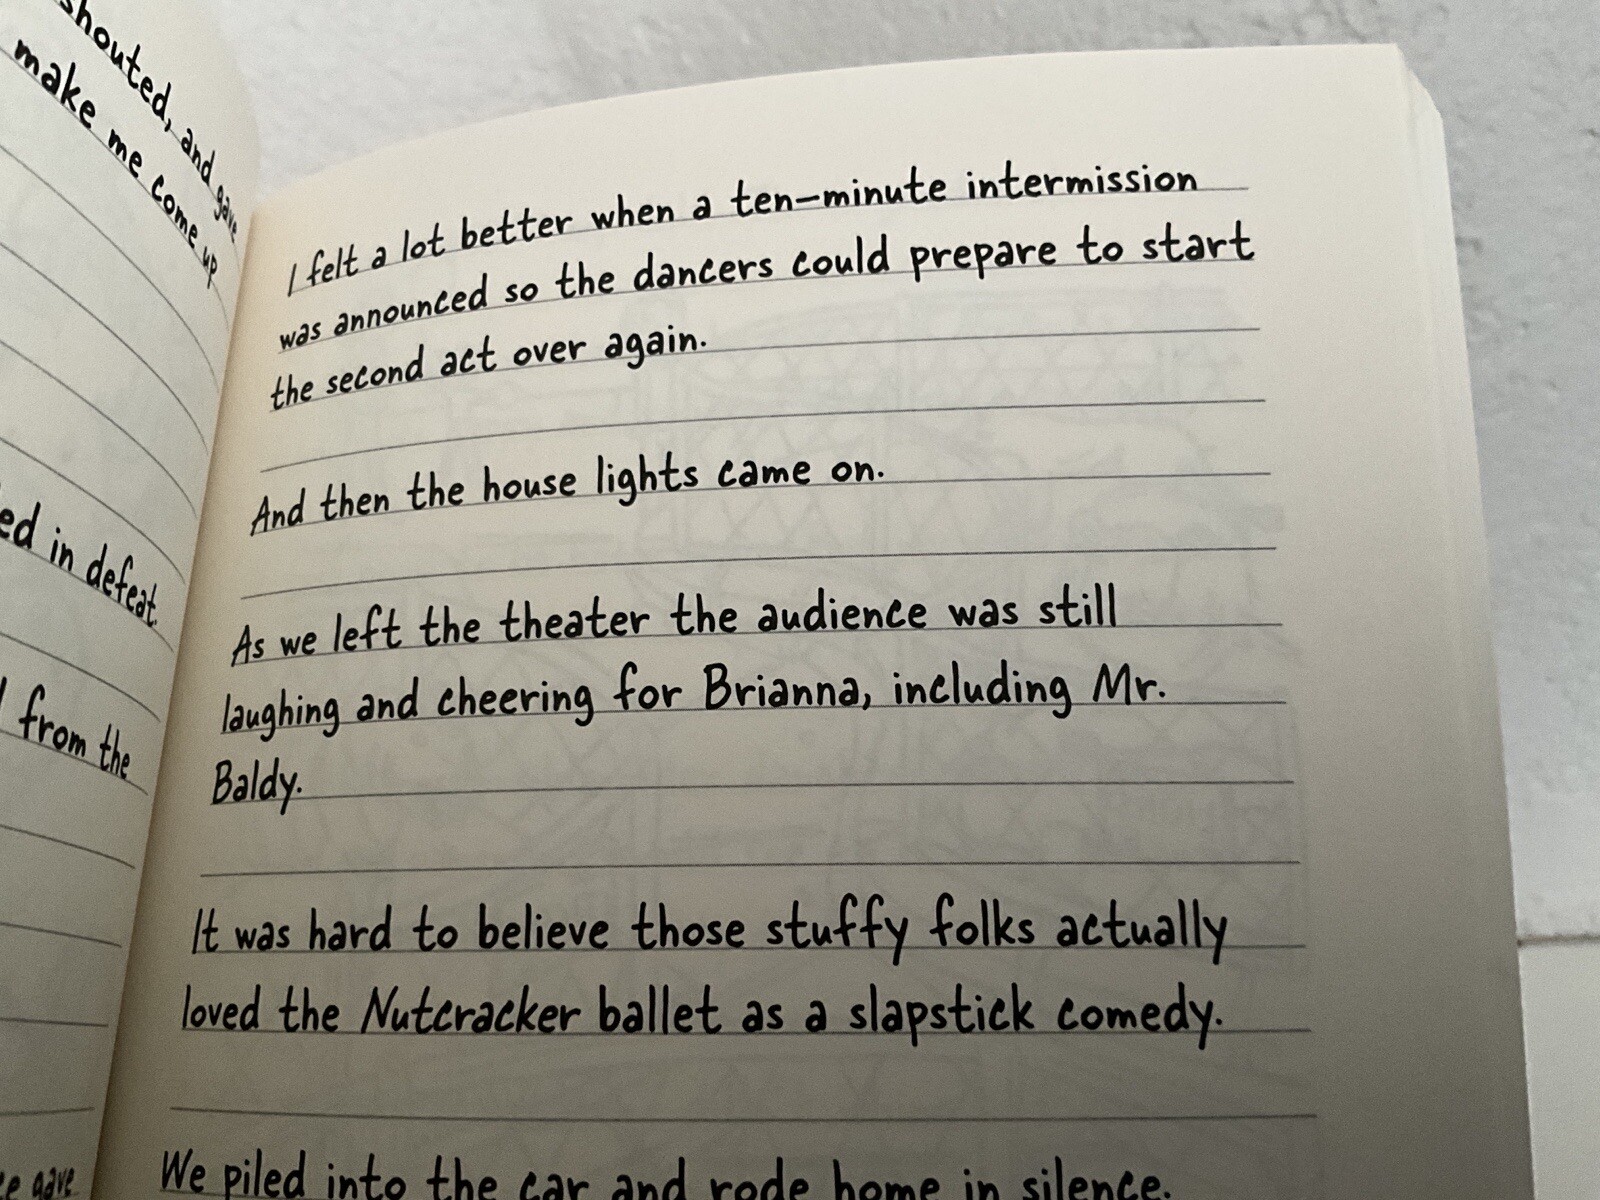 shouted, and gave
make me come up
ed in defeat.
from the
gave
I felt a lot better when a ten-minute intermission
was announced so the dancers could prepare to start
the second act over again.
And then the house lights came on.
As we left the theater the audience was still
laughing and cheering for Brianna, including Mr.
Baldy.
It was hard to believe those stuffy folks actually
loved the Nutcracker ballet as a slapstick comedy.
We piled into the car and rode home in silence.